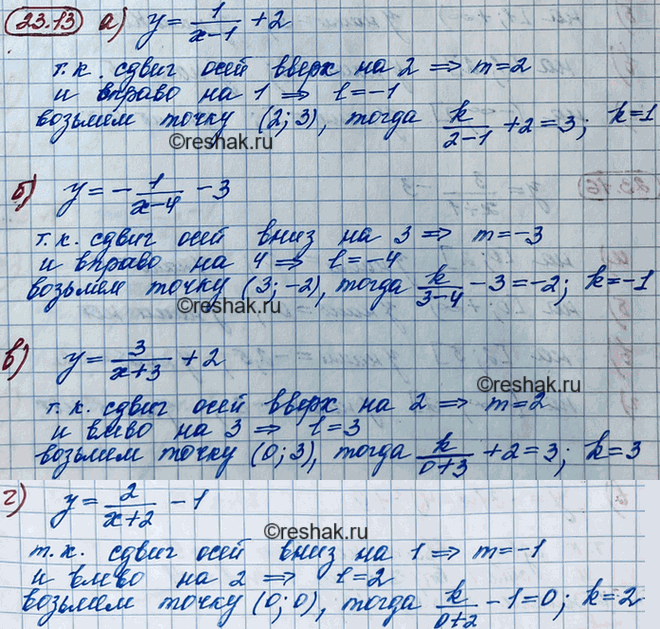 23.13 а) y = 1/(x-1) + 2
т.к. сдвиг осей вверх на 2 ⇒ m=2
и вправо на 1 ⇒ l=-1
возьмем точку (2; 3), тогда k/(2-1) + 2 = 3; k=1
©reshak.ru
б) y = - 1/(x-4) - 3
т.к. сдвиг осей вниз на 3 ⇒ m=-3
и вправо на 4 ⇒ l=-4
возьмем точку (3; -2), тогда k/(3-4) - 3 = -2; k=-1
в) y = 3/(x+3) + 2
©reshak.ru
т.к. сдвиг осей вверх на 2 ⇒ m=2
и влево на 3 ⇒ l=3
возьмем точку (0; 3), тогда k/(0+3) + 2 = 3; k=3
г) y = 2/(x+2) - 1
©reshak.ru
т.к. сдвиг осей вниз на 1 ⇒ m=-1
и влево на 2 ⇒ l=2
возьмем точку (0; 0), тогда k/(0+2) - 1 = 0; k=2